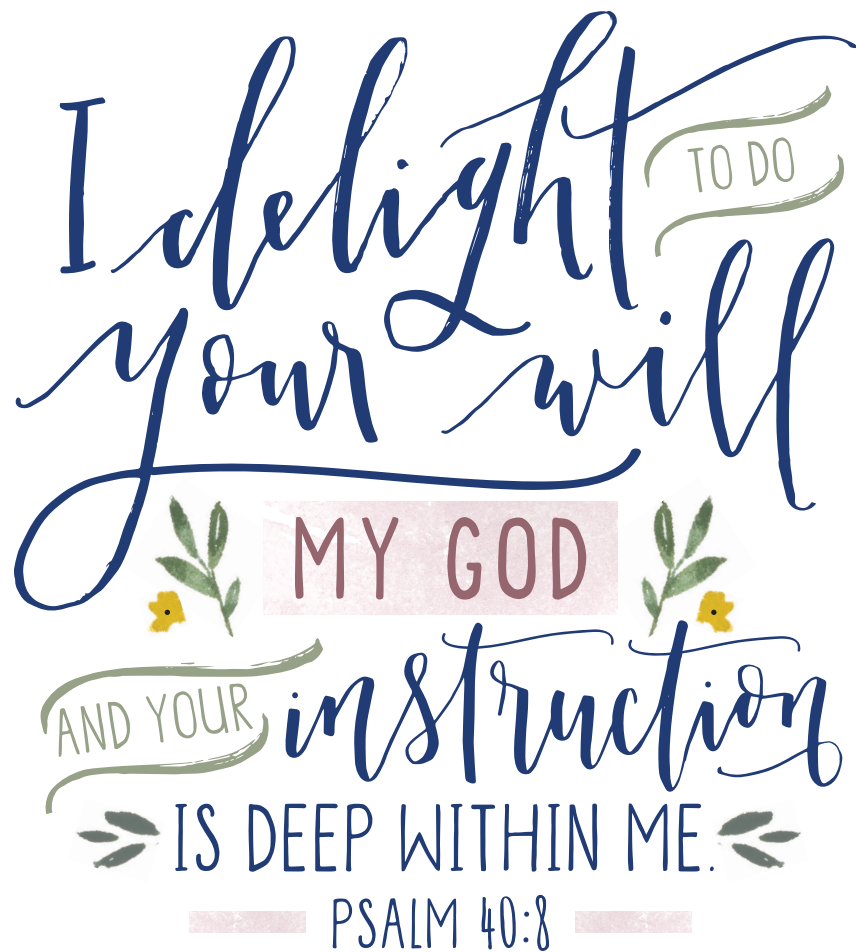 I delight TO DO
your will
MY GOD
AND YOUR instruction
IS DEEP WITHIN ME.
PSALM 40:8